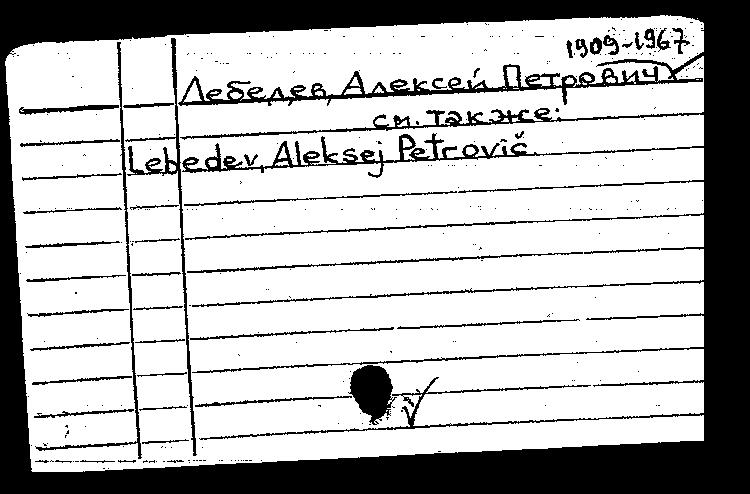 1909-1967
Лебедев, Алексей Петрович
см. также:
Lebedev, Aleksej Petrovič.